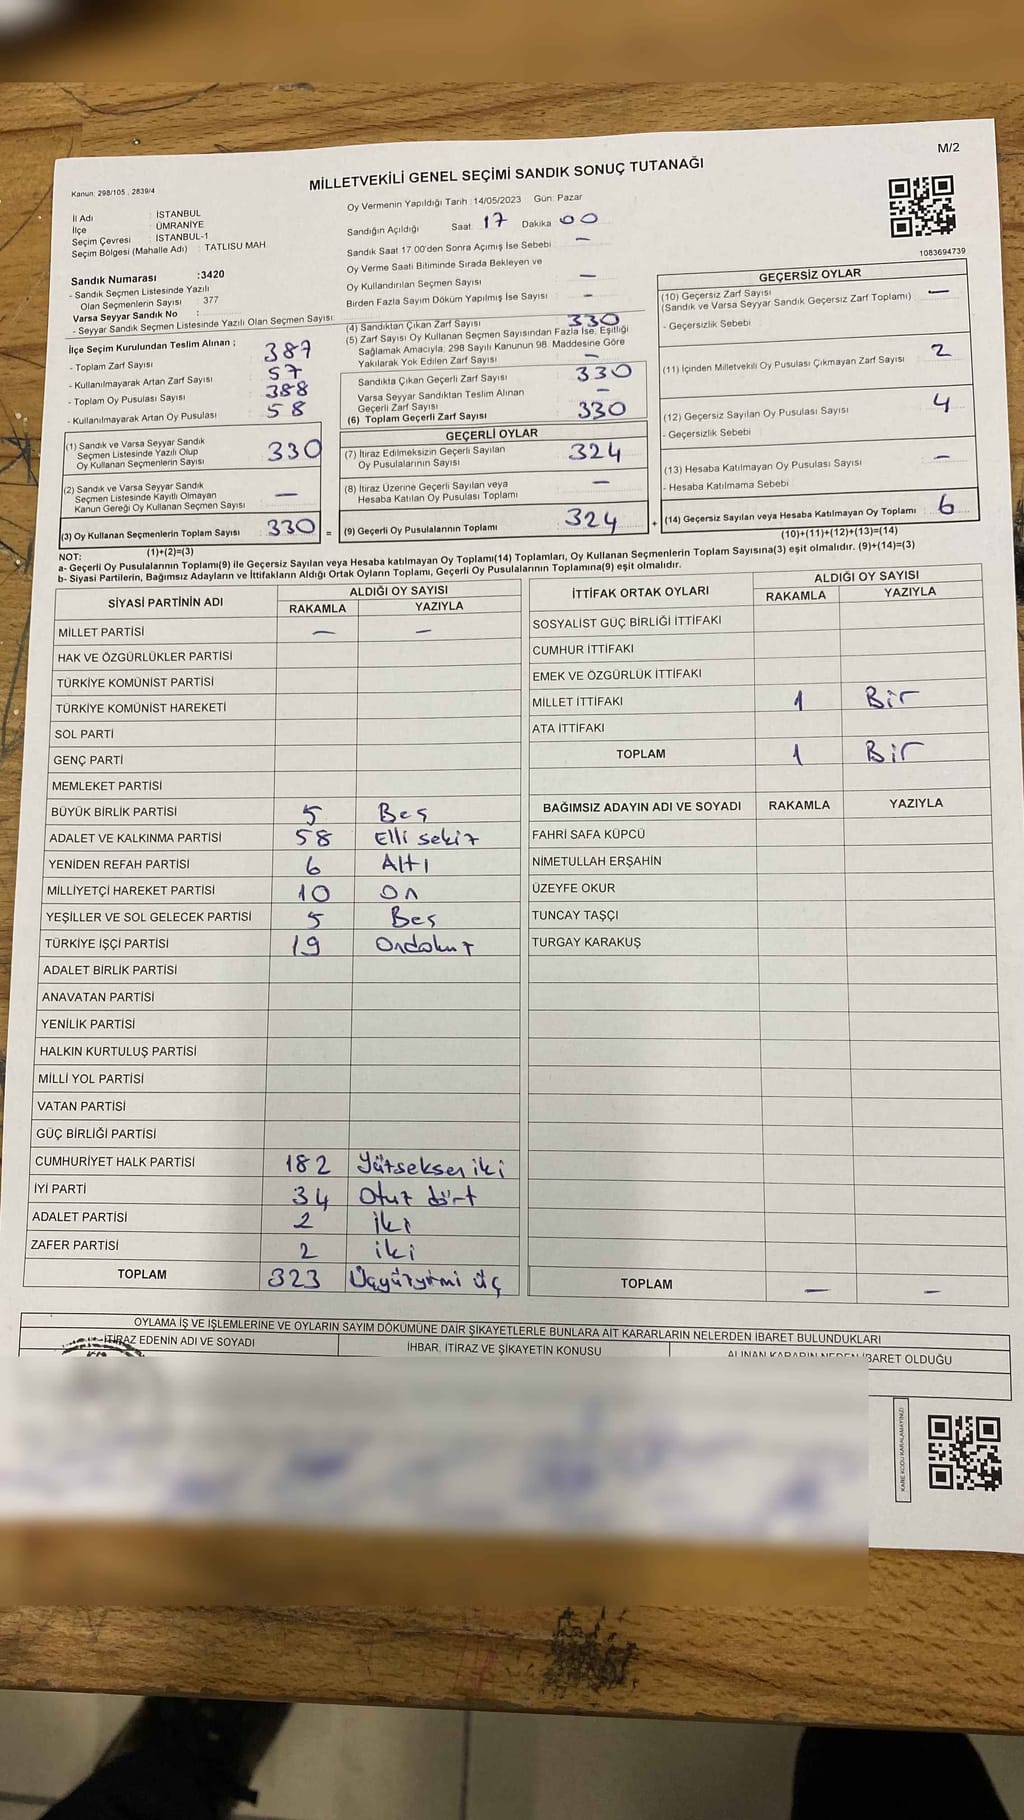 M/2
MİLLETVEKİLİ GENEL SEÇİMİ SANDIK SONUÇ TUTANAĞI
Kanun: 298/105 , 2839/4
İl Adı : İSTANBUL
İlçe : ÜMRANİYE
Seçim Çevresi : İSTANBUL-1
Seçim Bölgesi (Mahalle Adı) : TATLISU MAH.
Sandık Numarası :3420
- Sandık Seçmen Listesinde Yazılı
Olan Seçmenlerin Sayısı : 377
Varsa Seyyar Sandık No :
- Seyyar Sandık Seçmen Listesinde Yazılı Olan Seçmen Sayısı:
Oy Vermenin Yapıldığı Tarih :14/05/2023 Gün: Pazar
Sandığın Açıldığı Saat: 17 Dakika: 00
Sandık Saat 17.00'den Sonra Açımış İse Sebebi —
Oy Verme Saati Bitiminde Sırada Bekleyen ve
Oy Kullandırılan Seçmen Sayısı —
Birden Fazla Sayım Döküm Yapılmış İse Sayısı —
1083694739
İlçe Seçim Kurulundan Teslim Alınan ;
- Toplam Zarf Sayısı 387
- Kullanılmayarak Artan Zarf Sayısı 57
- Toplam Oy Pusulası Sayısı 388
- Kullanılmayarak Artan Oy Pusulası 58
(1) Sandık ve Varsa Seyyar Sandık
Seçmen Listesinde Yazılı Olup
Oy Kullanan Seçmenlerin Sayısı 330
(2) Sandık ve Varsa Seyyar Sandık
Seçmen Listesinde Kayıtlı Olmayan
Kanun Gereği Oy Kullanan Seçmen Sayısı —
(3) Oy Kullanan Seçmenlerin Toplam Sayısı 330 =
(1)+(2)=(3)
(4) Sandıktan Çıkan Zarf Sayısı 330
(5) Zarf Sayısı Oy Kullanan Seçmen Sayısından Fazla İse, Eşitliği
Sağlamak Amacıyla; 298 Sayılı Kanunun 98. Maddesine Göre
Yakılarak Yok Edilen Zarf Sayısı —
Sandıkta Çıkan Geçerli Zarf Sayısı 330
Varsa Seyyar Sandıktan Teslim Alınan
Geçerli Zarf Sayısı —
(6) Toplam Geçerli Zarf Sayısı 330
GEÇERLİ OYLAR
(7) İtiraz Edilmeksizin Geçerli Sayılan
Oy Pusulalarının Sayısı 324
(8) İtiraz Üzerine Geçerli Sayılan veya
Hesaba Katılan Oy Pusulası Toplamı —
(9) Geçerli Oy Pusulalarının Toplamı 324 +
GEÇERSİZ OYLAR
(10) Geçersiz Zarf Sayısı —
(Sandık ve Varsa Seyyar Sandık Geçersiz Zarf Toplamı)
- Geçersizlik Sebebi
(11) İçinden Milletvekili Oy Pusulası Çıkmayan Zarf Sayısı 2
(12) Geçersiz Sayılan Oy Pusulası Sayısı 4
- Geçersizlik Sebebi
(13) Hesaba Katılmayan Oy Pusulası Sayısı —
- Hesaba Katılmama Sebebi
(14) Geçersiz Sayılan veya Hesaba Katılmayan Oy Toplamı 6
(10)+(11)+(12)+(13)=(14)
NOT:
a- Geçerli Oy Pusulalarının Toplamı(9) ile Geçersiz Sayılan veya Hesaba katılmayan Oy Toplamı(14) Toplamları, Oy Kullanan Seçmenlerin Toplam Sayısına(3) eşit olmalıdır. (9)+(14)=(3)
b- Siyasi Partilerin, Bağımsız Adayların ve İttifakların Aldığı Ortak Oyların Toplamı, Geçerli Oy Pusulalarının Toplamına(9) eşit olmalıdır.
SİYASİ PARTİNİN ADI ALDIĞI OY SAYISI
RAKAMLA YAZIYLA
MİLLET PARTİSİ — —
HAK VE ÖZGÜRLÜKLER PARTİSİ
TÜRKİYE KOMÜNİST PARTİSİ
TÜRKİYE KOMÜNİST HAREKETİ
SOL PARTİ
GENÇ PARTİ
MEMLEKET PARTİSİ
BÜYÜK BİRLİK PARTİSİ 5 Beş
ADALET VE KALKINMA PARTİSİ 58 Elli sekiz
YENİDEN REFAH PARTİSİ 6 Altı
MİLLİYETÇİ HAREKET PARTİSİ 10 On
YEŞİLLER VE SOL GELECEK PARTİSİ 5 Beş
TÜRKİYE İŞÇİ PARTİSİ 19 Ondokuz
ADALET BİRLİK PARTİSİ
ANAVATAN PARTİSİ
YENİLİK PARTİSİ
HALKIN KURTULUŞ PARTİSİ
MİLLİ YOL PARTİSİ
VATAN PARTİSİ
GÜÇ BİRLİĞİ PARTİSİ
CUMHURİYET HALK PARTİSİ 182 Yüzseksen iki
İYİ PARTİ 34 Otuz dört
ADALET PARTİSİ 2 iki
ZAFER PARTİSİ 2 iki
TOPLAM 323 Üçyüzyirmi üç
İTTİFAK ORTAK OYLARI ALDIĞI OY SAYISI
RAKAMLA YAZIYLA
SOSYALİST GÜÇ BİRLİĞİ İTTİFAKI
CUMHUR İTTİFAKI
EMEK VE ÖZGÜRLÜK İTTİFAKI
MİLLET İTTİFAKI 1 Bir
ATA İTTİFAKI
TOPLAM 1 Bir
BAĞIMSIZ ADAYIN ADI VE SOYADI RAKAMLA YAZIYLA
FAHRİ SAFA KÜPCÜ
NİMETULLAH ERŞAHİN
ÜZEYFE OKUR
TUNCAY TAŞÇI
TURGAY KARAKUŞ
TOPLAM — —
OYLAMA İŞ VE İŞLEMLERİNE VE OYLARIN SAYIM DÖKÜMÜNE DAİR ŞİKAYETLERLE BUNLARA AİT KARARLARIN NELERDEN İBARET BULUNDUKLARI
İTİRAZ EDENİN ADI VE SOYADI İHBAR, İTİRAZ VE ŞİKAYETİN KONUSU ALINAN KARARIN NEDEN İBARET OLDUĞU
KARE KODU KARALAMAYINIZ!